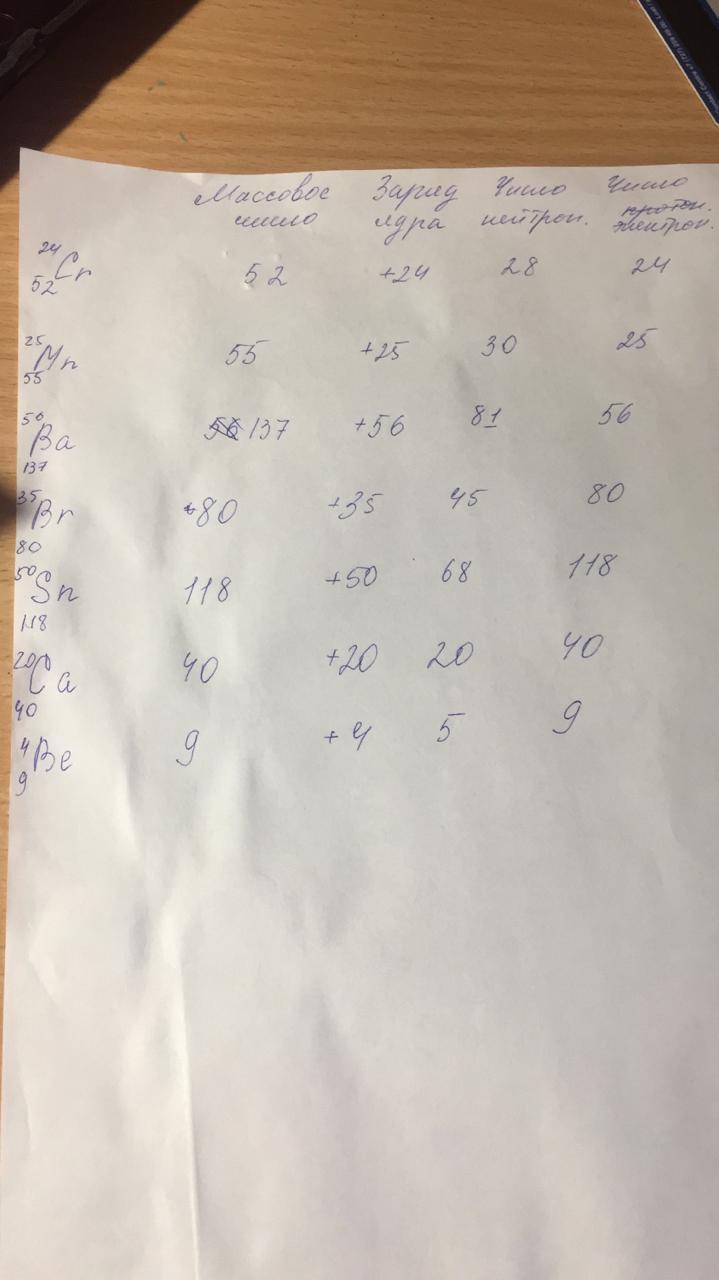 Массовое число Заряд ядра Число нейтрон. Число протон. электрон.
24 52 Cr 52 +24 28 24
25 55 Mn 55 +25 30 25
56 137 Ba 56 137 +56 81 56
35 80 Br 80 +35 45 80
50 118 Sn 118 +50 68 118
20 40 Ca 40 +20 20 40
4 9 Be 9 +4 5 9